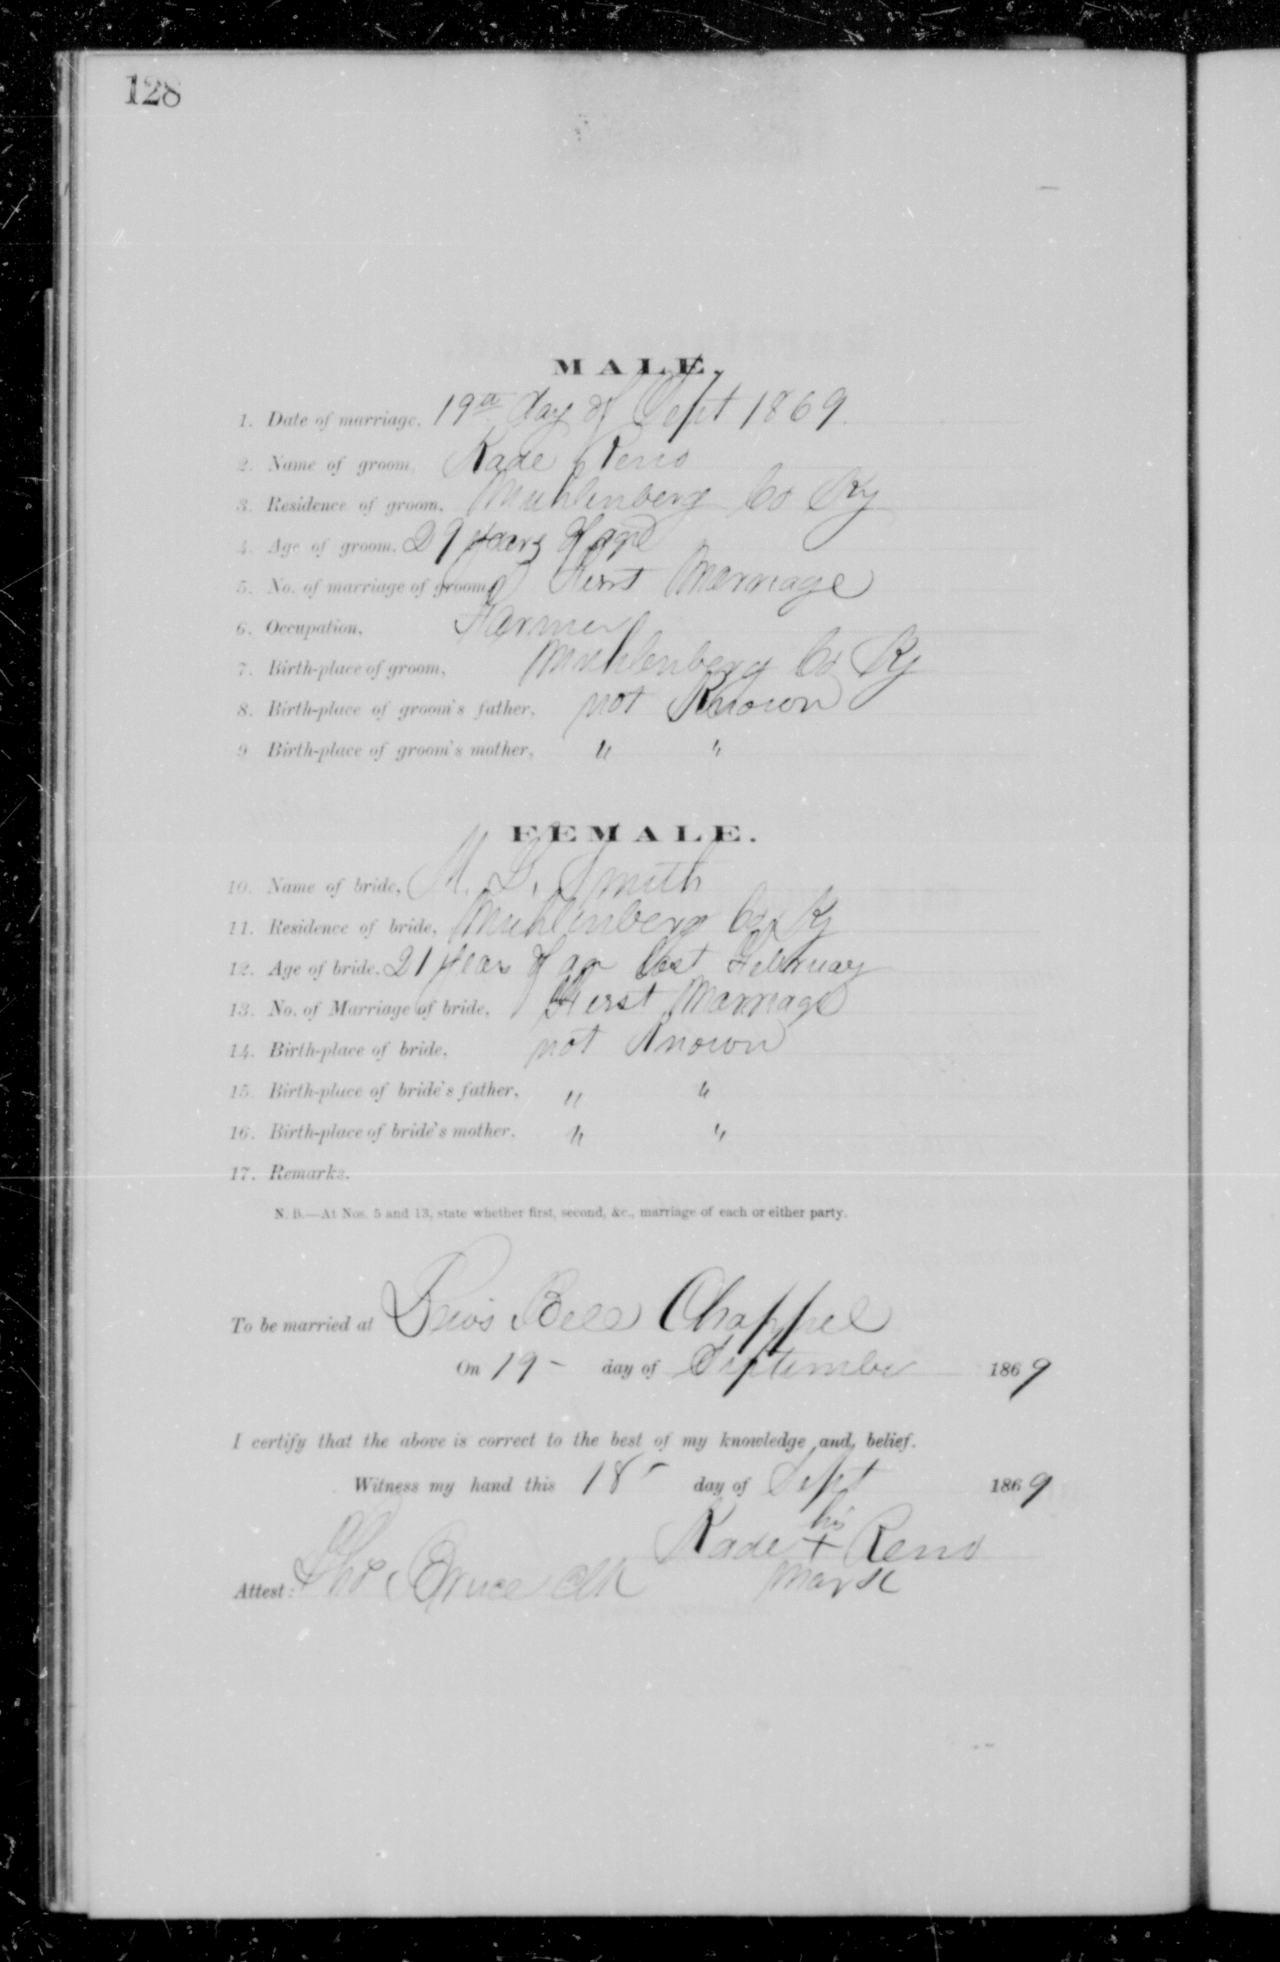 128
MALE.
1. Date of marriage, 19th day of Sept 1869.
2. Name of groom, Kade Reno
3. Residence of groom, Muhlenberg Co Ky
4. Age of groom, 29 years of age
5. No. of marriage of groom, First Marriage
6. Occupation, Farmer
7. Birth-place of groom, Muhlenberg Co Ky
8. Birth-place of groom's father, not Known
9 Birth-place of groom's mother, " "
FEMALE.
10. Name of bride, M. G. Smith
11. Residence of bride, Muhlenberg Co Ky
12. Age of bride, 21 years of age last February
13. No. of Marriage of bride, First Marriage
14. Birth-place of bride, not Known
15. Birth-place of bride's father, " "
16. Birth-place of bride's mother, " "
17. Remarks.
N. B.—At Nos. 5 and 13, state whether first, second, &c., marriage of each or either party.
To be married at Bell Chappel
On 19- day of September 1869
I certify that the above is correct to the best of my knowledge and belief.
Witness my hand this 18- day of Sept 1869
his
Kade + Reno
Attest: Tho Bruce Clk mark